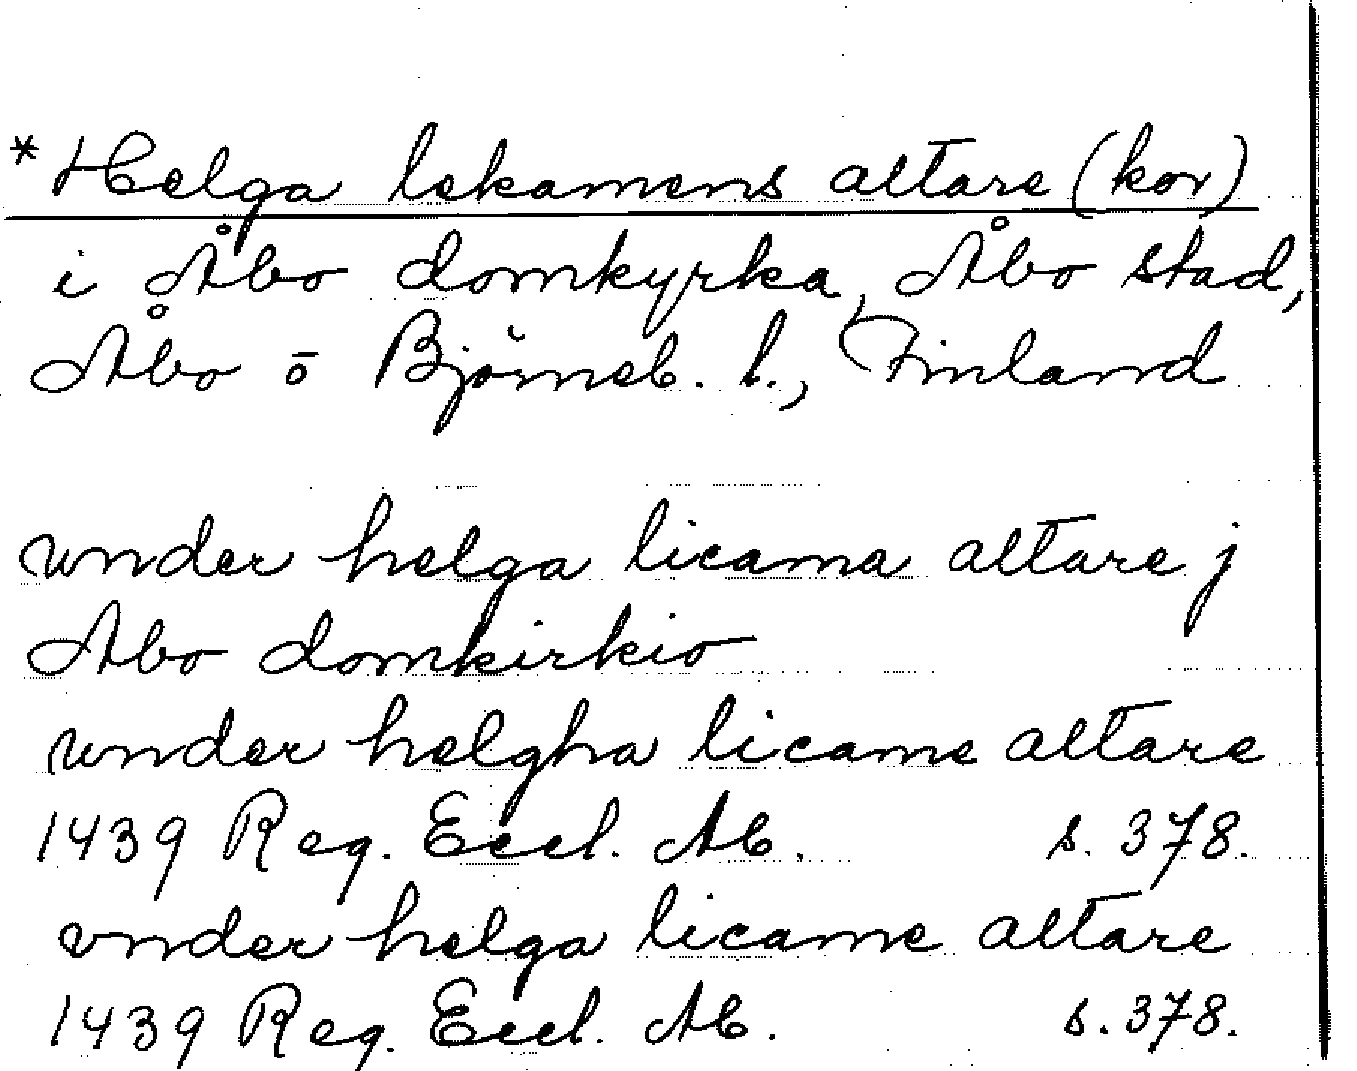 *Helga lekamens altare (kor)
i Åbo domkyrka, Åbo stad,
Åbo o Björneb. l., Finland
under helga licama altare j
Abo domkirkio
under helgha licame altare
1439 Reg. Eccl. Ab. s. 378.
vnder helga licame altare
1439 Reg. Eccl. Ab. s. 378.